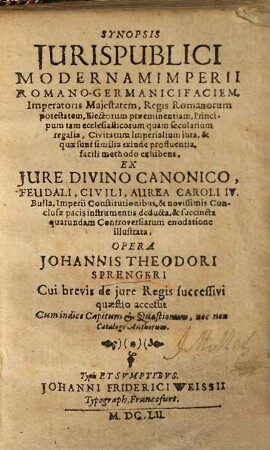 SYNOPSIS
JURISPUBLICI
MODERNAM IMPERII
ROMANO-GERMANICI FACIEM,
Imperatoris Majestatem, Regis Romanorum
potestatem, Electorum præeminentiam, Princi-
pum tam ecclesiasticorum quàm secularium
regalia, Civitatum Imperialium jura, &
quæ sunt similia exinde profluentia,
facili methodo exhibens,
EX
JURE DIVINO CANONICO,
FEUDALI, CIVILI, AUREA CAROLI IV.
Bulla, Imperii Constitutionibus, & novissimis Con-
clusæ pacis instrumentis deducta, & succincta
quarundam Controversiarum enodatione
illustrata,
OPERA
JOHANNIS THEODORI
SPRENGERI
Cui brevis de jure Regis successivi
quæstio accessit
Cum indice Capitum & Quæstionum, nec non
Catalogo Authorum.
Typis ET SUMPTIBUS.
JOHANNI FRIDERICI WEISSII
Typograph. Francofurt.
M. DC. LII.